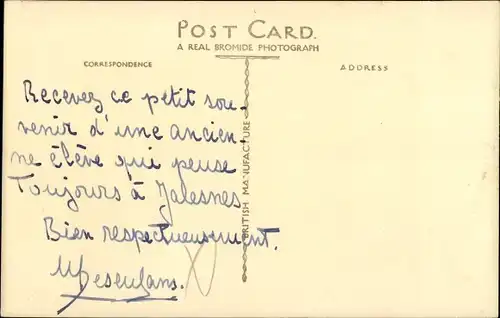 POST CARD.
A REAL BROMIDE PHOTOGRAPH
CORRESPONDENCE
ADDRESS
BRITISH MANUFACTURE
Recevez ce petit sou-
venir d'une ancien-
ne élève qui pense
Toujours à Jalesnes
Bien respectueusement.